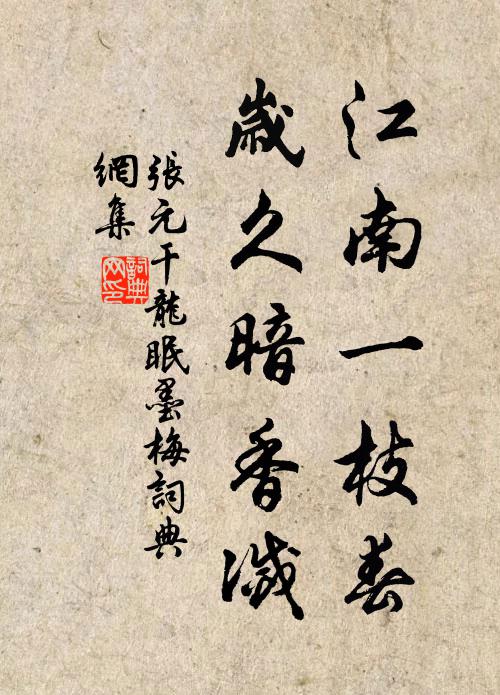 江南一枝春
歲久暗香滅
張元干龍眠墨梅詞典
網集
詞典
網印